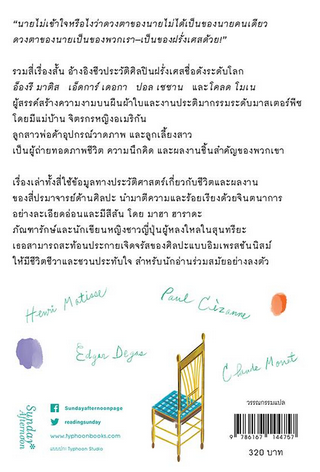 “นายไม่เข้าใจหรือไงว่าดวงตาของนายไม่ได้เป็นของนายคนเดียว
ดวงตาของนายเป็นของพวกเรา—เป็นของฝรั่งเศสด้วย!”
รวมสี่เรื่องสั้น อ้างอิงชีวประวัติศิลปินฝรั่งเศสชื่อดังระดับโลก
อ็องรี มาติส เอ็ดการ์ เดอกา ปอล เซซาน และโคลด โมเน
ผู้สรรค์สร้างความงามบนผืนผ้าใบและงานประติมากรรมระดับมาสเตอร์พีซ
โดยมีแม่บ้าน จิตรกรหญิงอเมริกัน
ลูกสาวพ่อค้าอุปกรณ์วาดภาพ และลูกเลี้ยงสาว
เป็นผู้ถ่ายทอดภาพชีวิต ความนึกคิด และผลงานชิ้นสำคัญของพวกเขา
เรื่องเล่าทั้งสี่ใช้ข้อมูลทางประวัติศาสตร์เกี่ยวกับชีวิตและผลงาน
ของสี่ปรมาจารย์ด้านศิลปะ นำมาตีความและร้อยเรียงด้วยจินตนาการ
อย่างละเอียดอ่อนและมีสีสัน โดย มาฮา ฮาราดะ
ภัณฑารักษ์และนักเขียนหญิงชาวญี่ปุ่นผู้หลงใหลในสุนทรียะ
เธอสามารถสะท้อนประกายเจิดจรัสของศิลปะแบบอิมเพรสชันนิสม์
ให้มีชีวิตชีวาและชวนประทับใจ สำหรับนักอ่านร่วมสมัยอย่างลงตัว
Henri Matisse
Paul Cézanne
Edgar Degas
Claude Monet
Sunday Afternoon
Sundayafternoonpage
readingsunday
www.typhoonbooks.com
Typhoon Studio
วรรณกรรมแปล
9 786167 144757
320 บาท